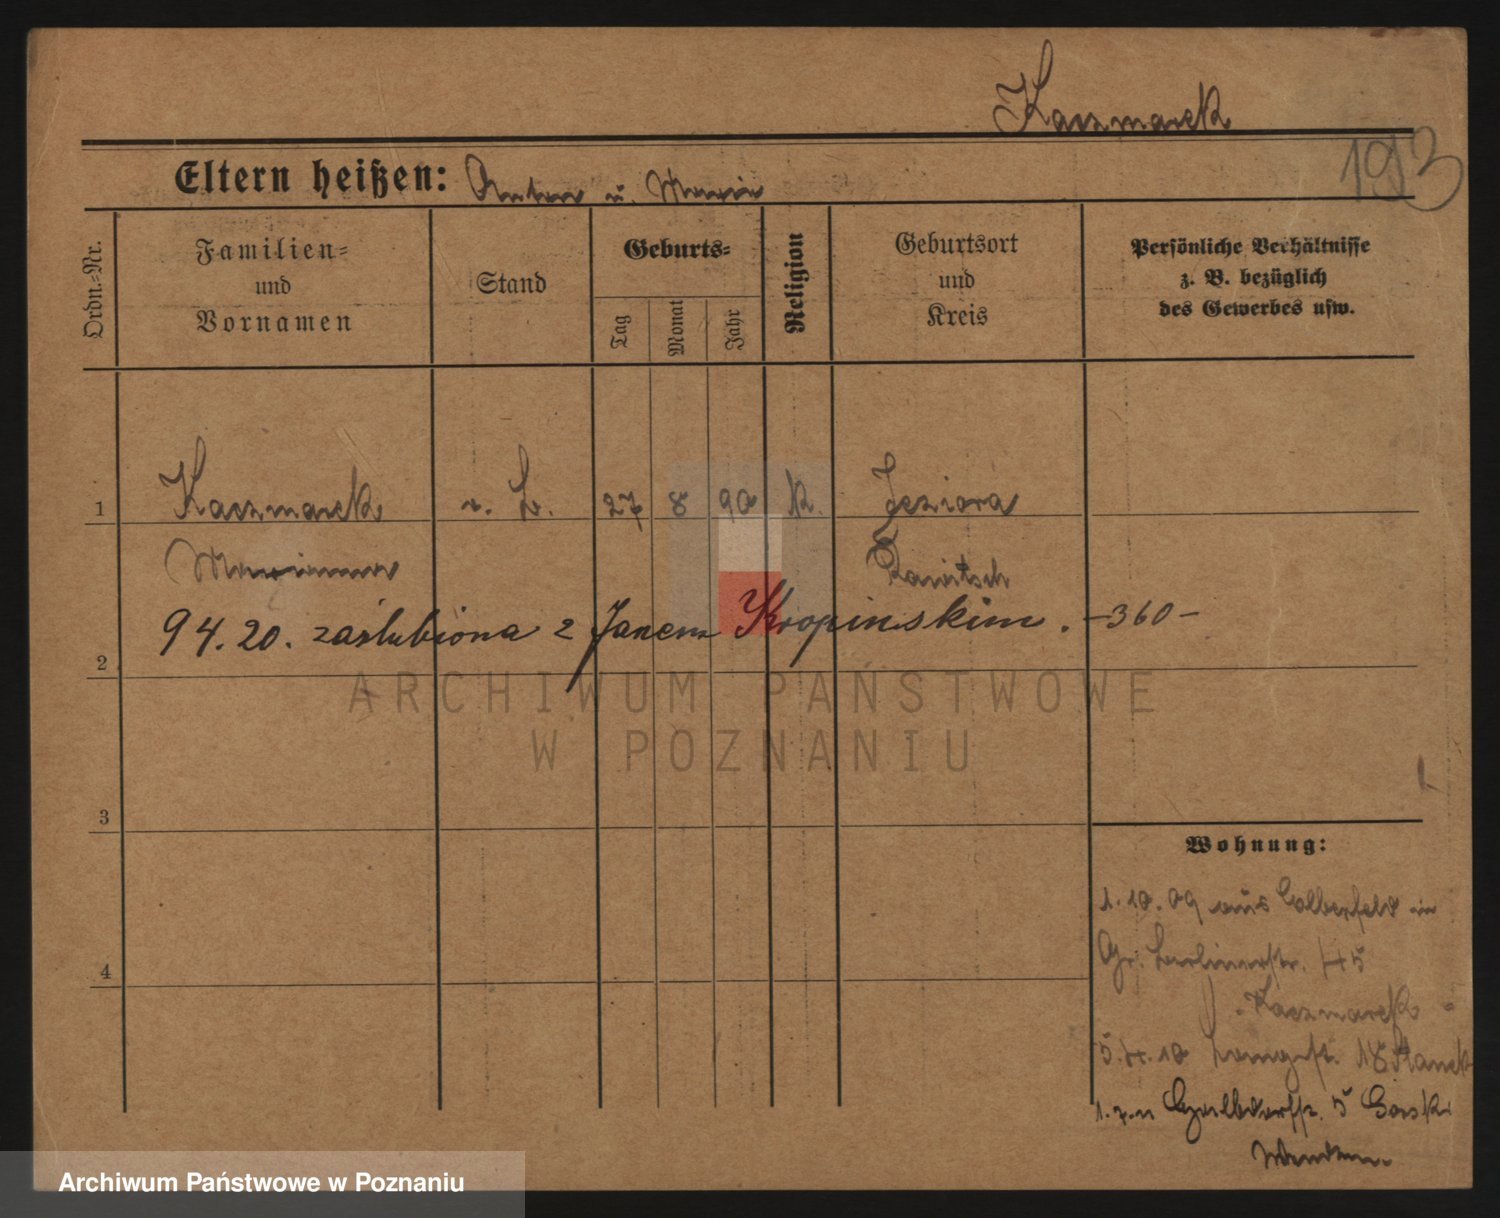 Kaczmarek
193
Eltern heißen: Anton u. Marie
Ordn.-Nr.
Familien-
und
Vornamen
Stand
Geburts-
Tag
Monat
Jahr
Religion
Geburtsort
und
Kreis
Persönliche Verhältnisse
z. B. bezüglich
des Gewerbes usw.
1 Kaczmarek 27 8 90 k. Jeziora
Marianna Rawitsch
94.20. zaślubiona z Janem Kropinskim. -360-
2
ARCHIWUM PAŃSTWOWE
W POZNANIU
3
Wohnung:
1.10.09 aus in
4
Gr. Berlinerstr. 45
Kaczmarek
5.4.10 Langestr. 18
1.7.11 5 Górski
Archiwum Państwowe w Poznaniu